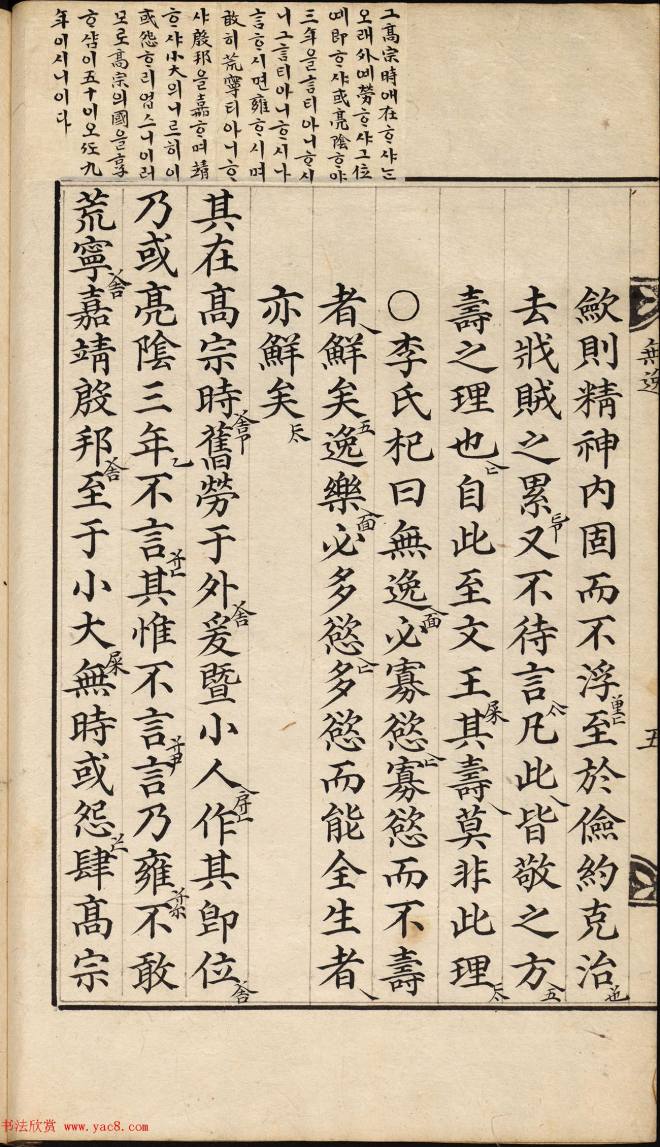 그髙宗時애在ᄒᆞ샤ᄂᆞᆫ
오래外예勞ᄒᆞ샤그位
예即ᄒᆞ샤或亮陰ᄒᆞ야
三年을言티아니ᄒᆞ시
니그言티아니ᄒᆞ시나
言ᄒᆞ시면雍ᄒᆞ시며
敢히荒寧티아니ᄒᆞ
샤殷邦을嘉ᄒᆞ며靖
ᄒᆞ샤小大의니르히이
或怨ᄒᆞ리업스니이러
모로髙宗의國을享
ᄒᆞ샴이五十이오九
年이시니이다
無逸
五
歛則精神内固而不浮至於儉約克治
去戕賊之累又不待言凡此皆敬之方
壽之理也自此至文王其壽莫非此理
〇李氏杞曰無逸必寡慾寡慾而不壽
者鮮矣逸樂必多慾多慾而能全生者
亦鮮矣
其在髙宗時舊勞于外爰暨小人作其卽位
乃或亮陰三年不言其惟不言言乃雍不敢
荒寧嘉靖殷邦至于小大無時或怨肆髙宗
书法欣赏 www.yac8.com